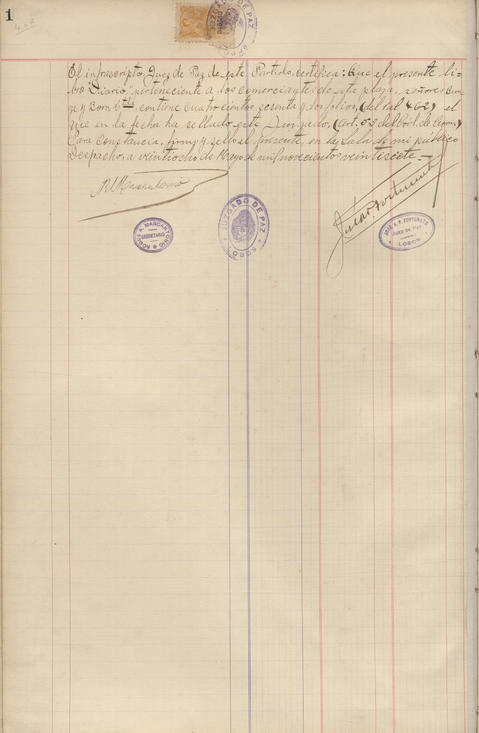 1
462
JUZGADO DE PAZ
LOBOS
El infrascripto, Juez de Paz de este Partido, certifica: Que el presente li-
bro "Diario", perteneciente a los comerciantes de esta plaza, señores
y Born contiene cuatrocientos sesenta y dos folios, (del 1 al 462) el
que en la fecha ha sellado este Juzgado, (art. 53 del Cód. de Com.)
Para constancia, firmo y sello el presente, en la Sala de mi público
Despacho, a veintiocho de Mayo de mil novecientos veintisiete.—
JUZGADO DE PAZ
LOBOS
A. MARCANTONIO
SECRETARIO
JOSE A. P. FORTUNATO
JUEZ DE PAZ
LOBOS